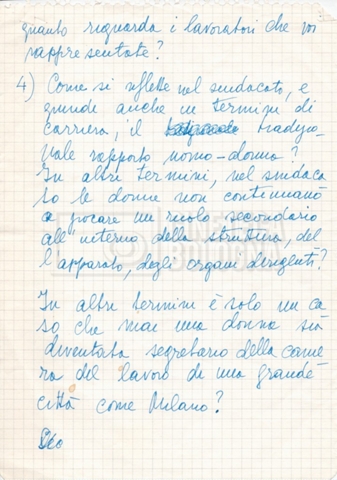 quanto riguarda i lavoratori che voi
rappresentate?
4) Come si riflette nel sindacato, e
quindi anche in termini di
carriera, il tradizio-
nale rapporto uomo-donna?
In altri termini, nel sindaca
to le donne non continuano
a giocare un ruolo secondario
all'interno della struttura, del
l'apparato, degli organi dirigenti?
In altri termini è solo un ca
so che mai una donna sia
diventata segretario della came
ra del lavoro di una grande
città come Milano?